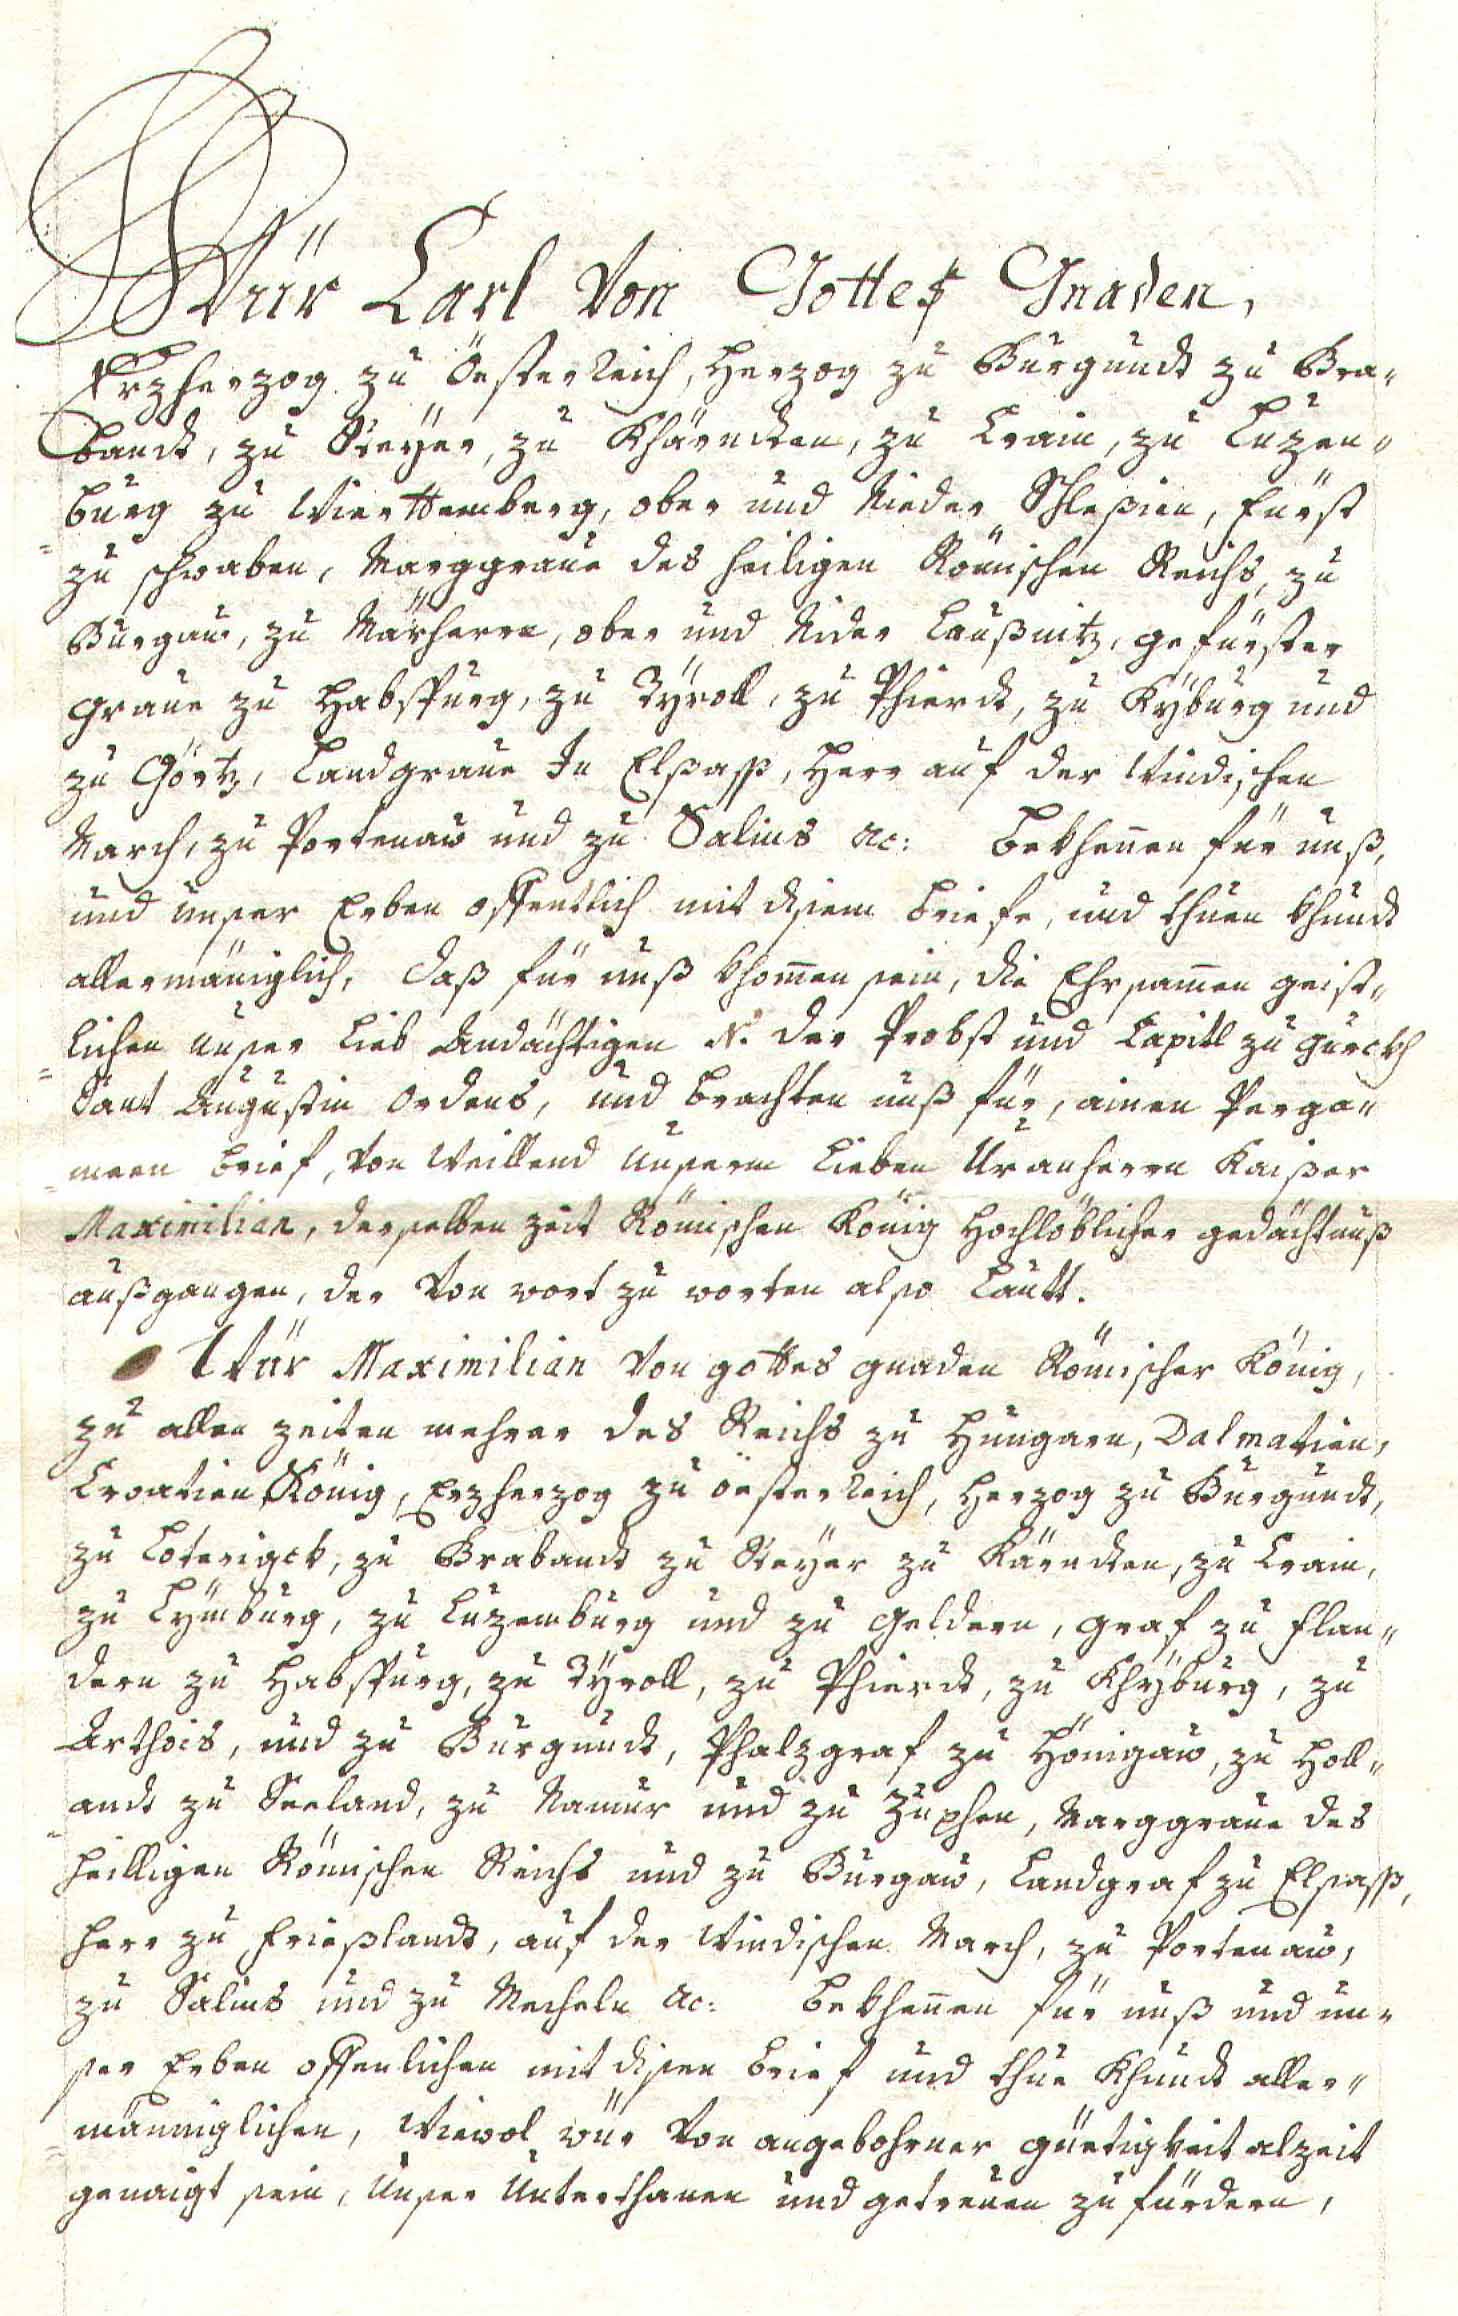 Wür Carl Von Gottes Gnaden,
Erzherzog zu Öesterreich, Herzog zu Burgundt zu Bra-
bandt, zu Steyer, zu Khärndten, zu Crain, zu Luzen-
burg zu Wierttemberg, ober und Nieder Schleßien, fürst
zu schwaben, Marggraue des heiligen Römischen Reichs, zu
Burgaw, zu Märherrn, ober und Nider Laußnitz, gefürster
graue zu Habspurg, zu Tÿroll, zu Phierdt, zu Kÿburg und
zu Görtz, Landgraue In Elßass, Herr auf der Windischen
March, zu Portenaw und zu Salins ac: bekhennen für unß,
und unser Erben offentlich mit disem briefe, und thuen khundt
allermäniglich, daß für unß khomen sein, die Ehrsamen geist-
lichen unser lieb Andächtigen N. der Probst und Capitl zu gurckh
Sant Augustin Ordens, und brachten unß für, ainen Perga-
meen brief, von Weillend unserm lieben Uranherrn Kaißer
Maximilian, derselben zeit Römischen König Hochlöblicher gedächtnuß
außgangen, der Von wort zu worten also lautt.
Wür Maximilian Von gottes gnaden Römischer König,
zu allen zeiten mehrer des Reichs zu Hungarn, Dalmatien,
Croatien König, Erzherzog zu öesterreich, Herzog zu Burgundt,
zu Loterigck, zu Brabandt zu Steÿer zu Kärndten, zu Crain,
zu Lÿmburg, zu Luzemburg und zu geldern, graf zu flan-
dern zu Habspurg, zu Tÿroll, zu Phierdt, zu Khÿburg, zu
Arthois, und zu Burgundt, Phalzgraf zu Hönigaw, zu Holl-
andt zu Seeland, zu Namur und zu Zuphen, Marggraue des
heilligen Römischen Reichs und zu Burgaw, Landgraf zu Elsass,
herr zu frießlandt, auf der Windischen March, zu Portenaw,
zu Salins und zu Mecheln ac: bekhennen für unß und un-
ser Erben offenlichen mit disen brief und thue Khundt aller-
männiglichen, Wiewol wür Von angebohrner güetigkeit alzeit
genaigt sein, Unser Unterthanen und getreuen zu fürdern,